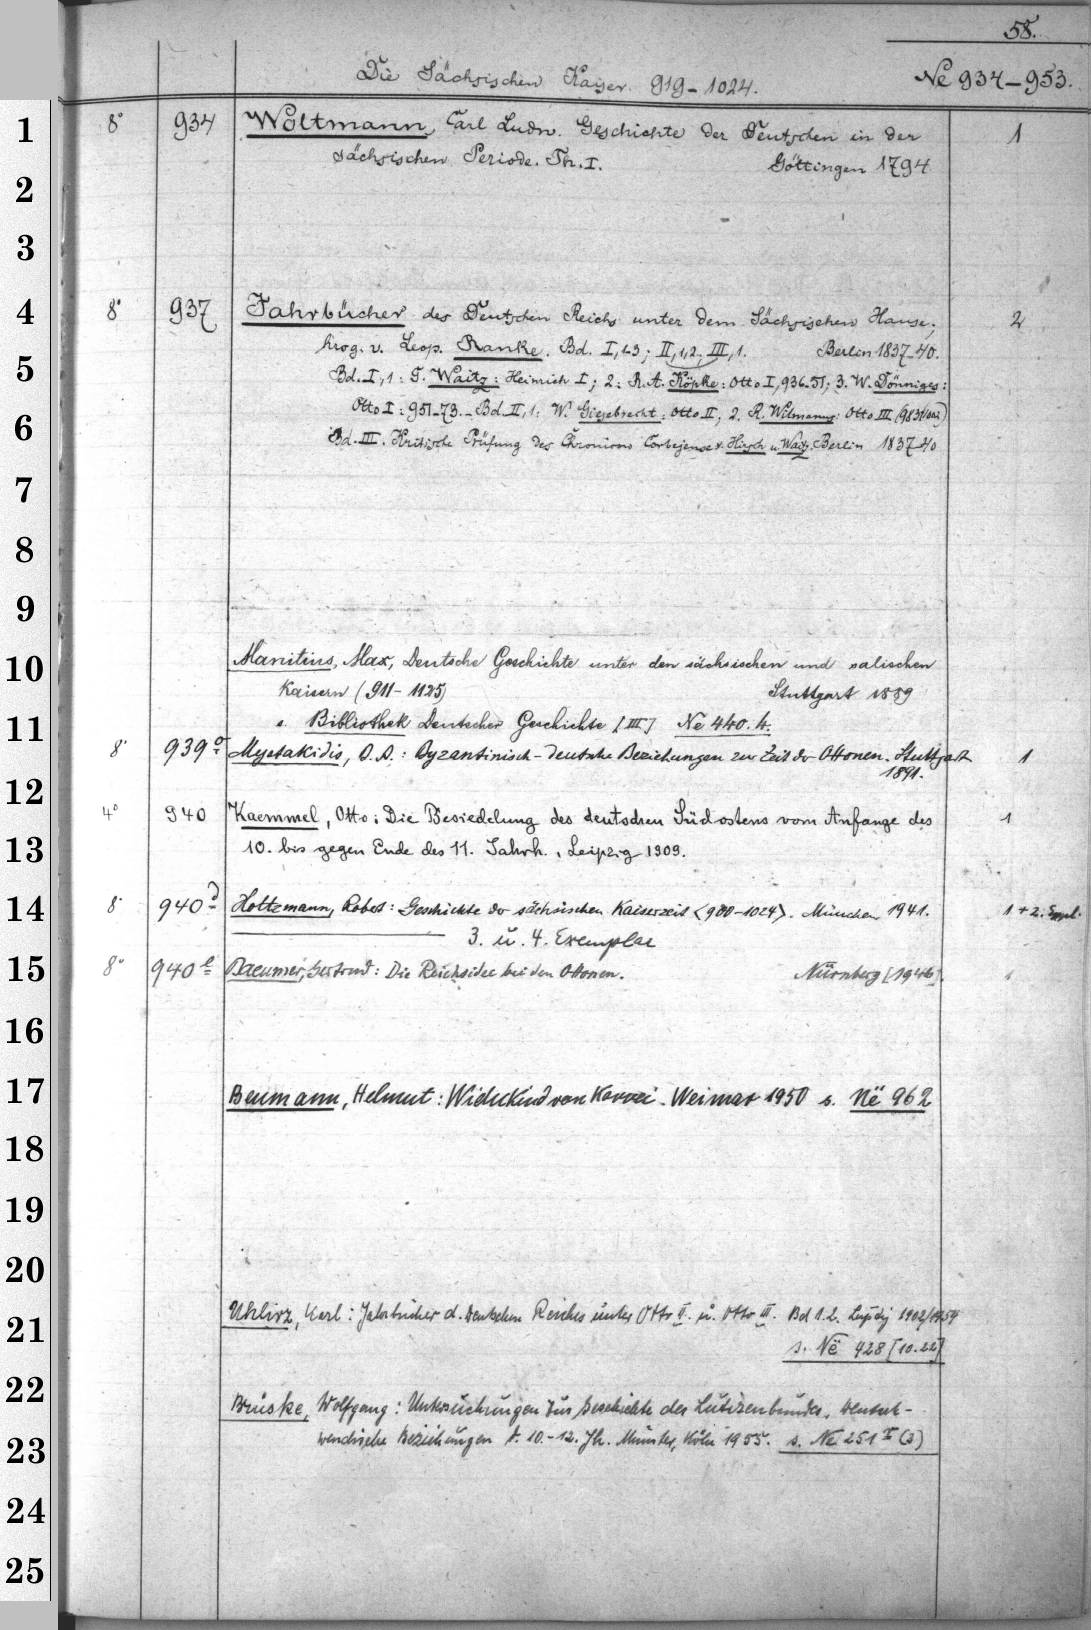 58.
Die Sächsischen Kaiser 919-1024. Ne 934-953.
1 8° 934 Woltmann, Carl Ludw. Geschichte der Deutschen in der 1
sächsischen Periode. Th. I. Göttingen 1794
2
3
4 8° 937 Jahrbücher des Deutschen Reichs unter dem Sächsischen Hause; 2
hrsg. v. Leop. Ranke. Bd. I,1-3; II,1,2; III,1. Berlin 1837-40.
5 Bd. I,1: G. Waitz: Heinrich I; 2: R. A. Köpke: Otto I, 936-51; 3. W. Dönniges:
Otto I: 951-73. - Bd. II,1: W. Giesebrecht: Otto II; 2. R. Wilmanns: Otto III
6 Bd. III. Kritische Prüfung des Chronicons Corbejense v. Hirsch u. Waitz. Berlin 1837-40
7
8
9
10 Manitius, Max, Deutsche Geschichte unter den sächsischen und salischen
Kaisern (911-1125) Stuttgart 1889
11 s. Bibliothek Deutscher Geschichte [III] Ne 440.4.
8° 939a Mystakidis, B. A.: Byzantinisch-deutsche Beziehungen zur Zeit der Ottonen. Stuttgart 1
1891.
12
4° 940 Kaemmel, Otto: Die Besiedelung des deutschen Südostens vom Anfange des 1
13 10. bis gegen Ende des 11. Jahrh., Leipzig 1909.
14 8° 940d Holtzmann, Robert: Geschichte der sächsischen Kaiserzeit <900-1024>. München 1941. 1 + 2. Expl.
3. u. 4. Exemplar
15 8° 940e Baeumer, Gertrud: Die Reichsidee bei den Ottonen. Nürnberg [1946]. 1
16
17 Beumann, Helmut: Widukind von Korvei. Weimar 1950 s. Në 962
18
19
20
21 Uhlirz, Karl: Jahrbücher d. Deutschen Reiches unter Otto II. u. Otto III. Bd 1.2. Leipzig 1902/1954
s. Në 428 [10.22]
22 Brüske, Wolfgang: Untersuchungen zur Geschichte des Lutizenbundes. Deutsch-
23 wendische Beziehungen d. 10.-12. Jh. Münster, Köln 1955. s. Ne 251 x (3)
24
25